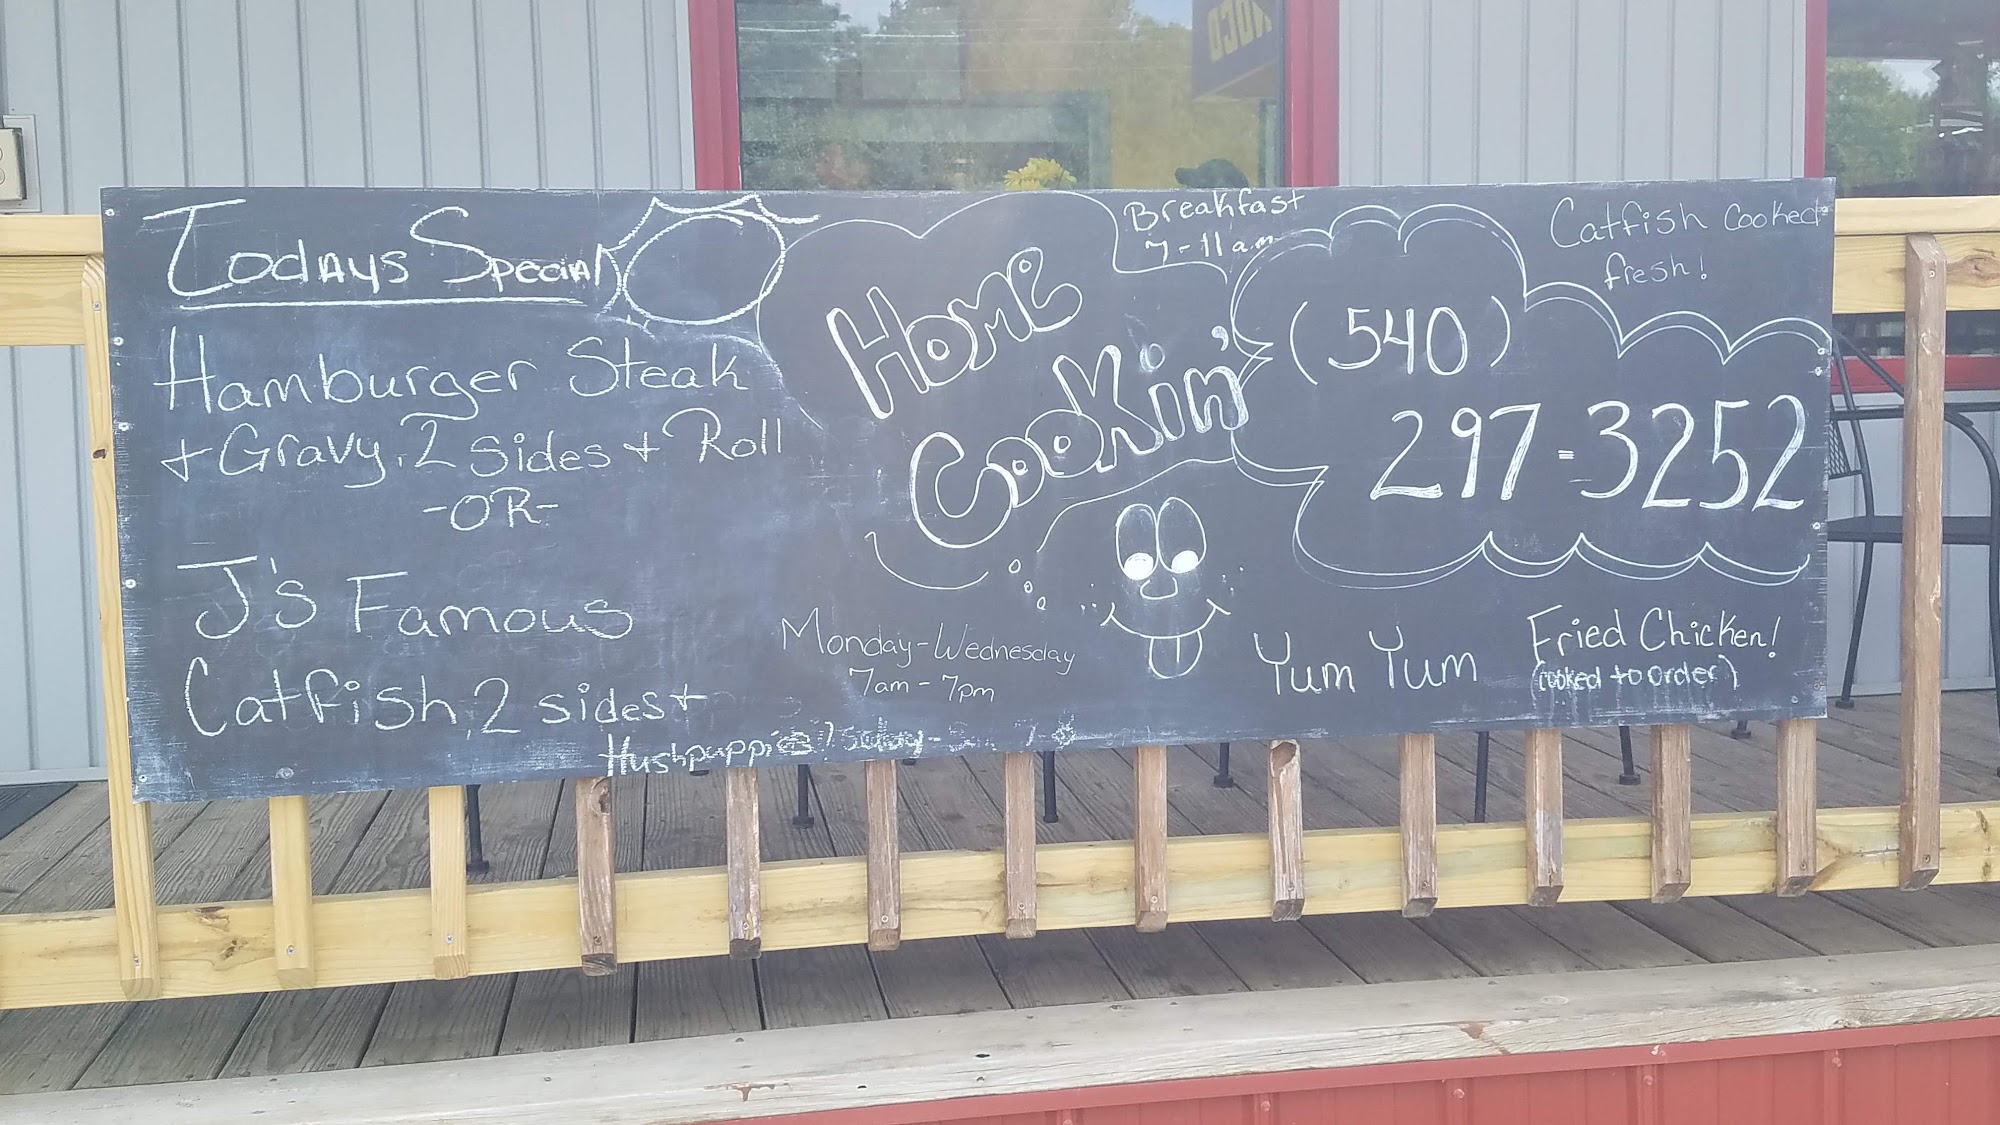 Todays Special
Hamburger Steak
+ Gravy, 2 sides + Roll
-OR-
J's Famous
Catfish, 2 sides +
Hushpuppies!
Home
Cookin'
Monday-Wednesday
7am - 7pm
Breakfast
7-11 a.m
(540)
297-3252
Catfish Cooked
fresh!
Yum Yum
Fried Chicken!
(cooked to order)